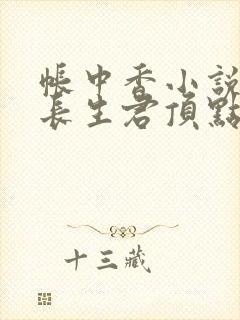 帳中香小說
長生君頂點
十三藏